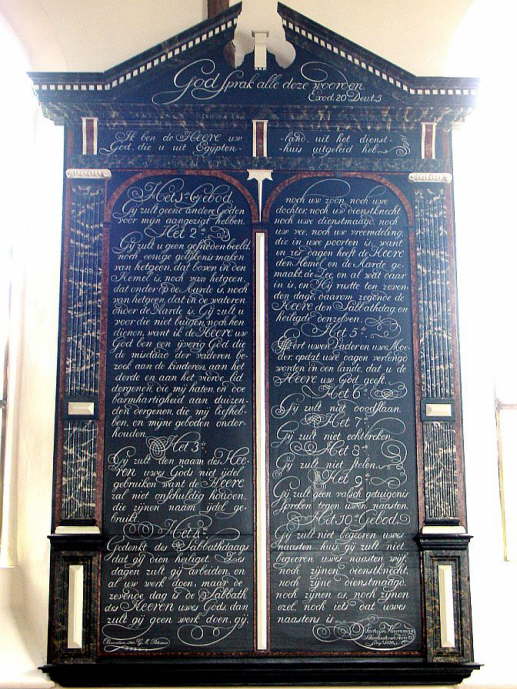 God sprak alle deze woorden
Exod. 20 Deut. 5
Ik ben de Heere uw
God, die u uit Egypten-
-land, uit het dienst-
-huis, uitgeleid heb.
Het 1e Gebod.
Gij zult geene andere Goden
voor mijn aangezigt hebben.
Het 2e
Gij zult u geen gesneden beeld,
noch eenige gelijkenis maken
van hetgeen, dat boven in den
Hemel is, noch van hetgeen,
dat onder de Aarde is, noch
van hetgeen, dat in de wateren
onder de Aarde is. Gij zult u
voor die niet buigen, noch hen
dienen, want ik de Heere uw
God ben een ijverig God, die
de misdaad der vaderen be-
zoek aan de kinderen, aan het
derde en aan het vierde lid
dergenen, die mij haten en doe
barmhartigheid aan duizen-
den dergenen, die mij liefheb-
ben, en mijne geboden onder-
houden.
Het 3e
Gij zult den naam des Hee-
ren uwes Gods niet ijdel
gebruiken, want de Heere
zal niet onschuldig houden,
die zijnen naam ijdel ge-
bruikt.
Het 4e
Gedenkt des Sabbathdaags
dat gij dien heiligt. Zes
dagen zult gij arbeiden, en
al uw werk doen, maar de
zevende dag is de Sabbath
des Heeren uwes Gods, dan
zult gij geen werk doen,
noch uw zoon, noch uwe
dochter, noch uw dienstknecht
noch uwe dienstmaagd, noch
uw vee, noch uw vreemdeling,
die in uwe poorten is, want
in zes dagen heeft de Heere
den Hemel en de Aarde ge-
maakt, de Zee, en al wat daar
in is, en Hij rustte ten zeven-
den dage, daarom zegende de
Heere den Sabbathdag, en
heiligde denzelven.
Het 5e
Eert uwen Vader en uwe Moe-
der, opdat uwe dagen verlengd
worden in een land, dat u de
Heere uw God geeft.
Het 6e
Gij zult niet doodslaan.
Het 7e
Gij zult niet echtbreken.
Het 8e
Gij zult niet stelen.
Het 9e
Gij zult geen valsch getuigenis
spreken tegen uwen naasten.
Het 10e Gebod.
Gij zult niet begeeren uwes
naasten huis, gij zult niet
begeeren uwes naasten wijf,
noch zijnen dienstknecht,
noch zijne dienstmaagd,
noch zijnen os, noch zijnen
ezel, noch iets dat uwes
naastens is.